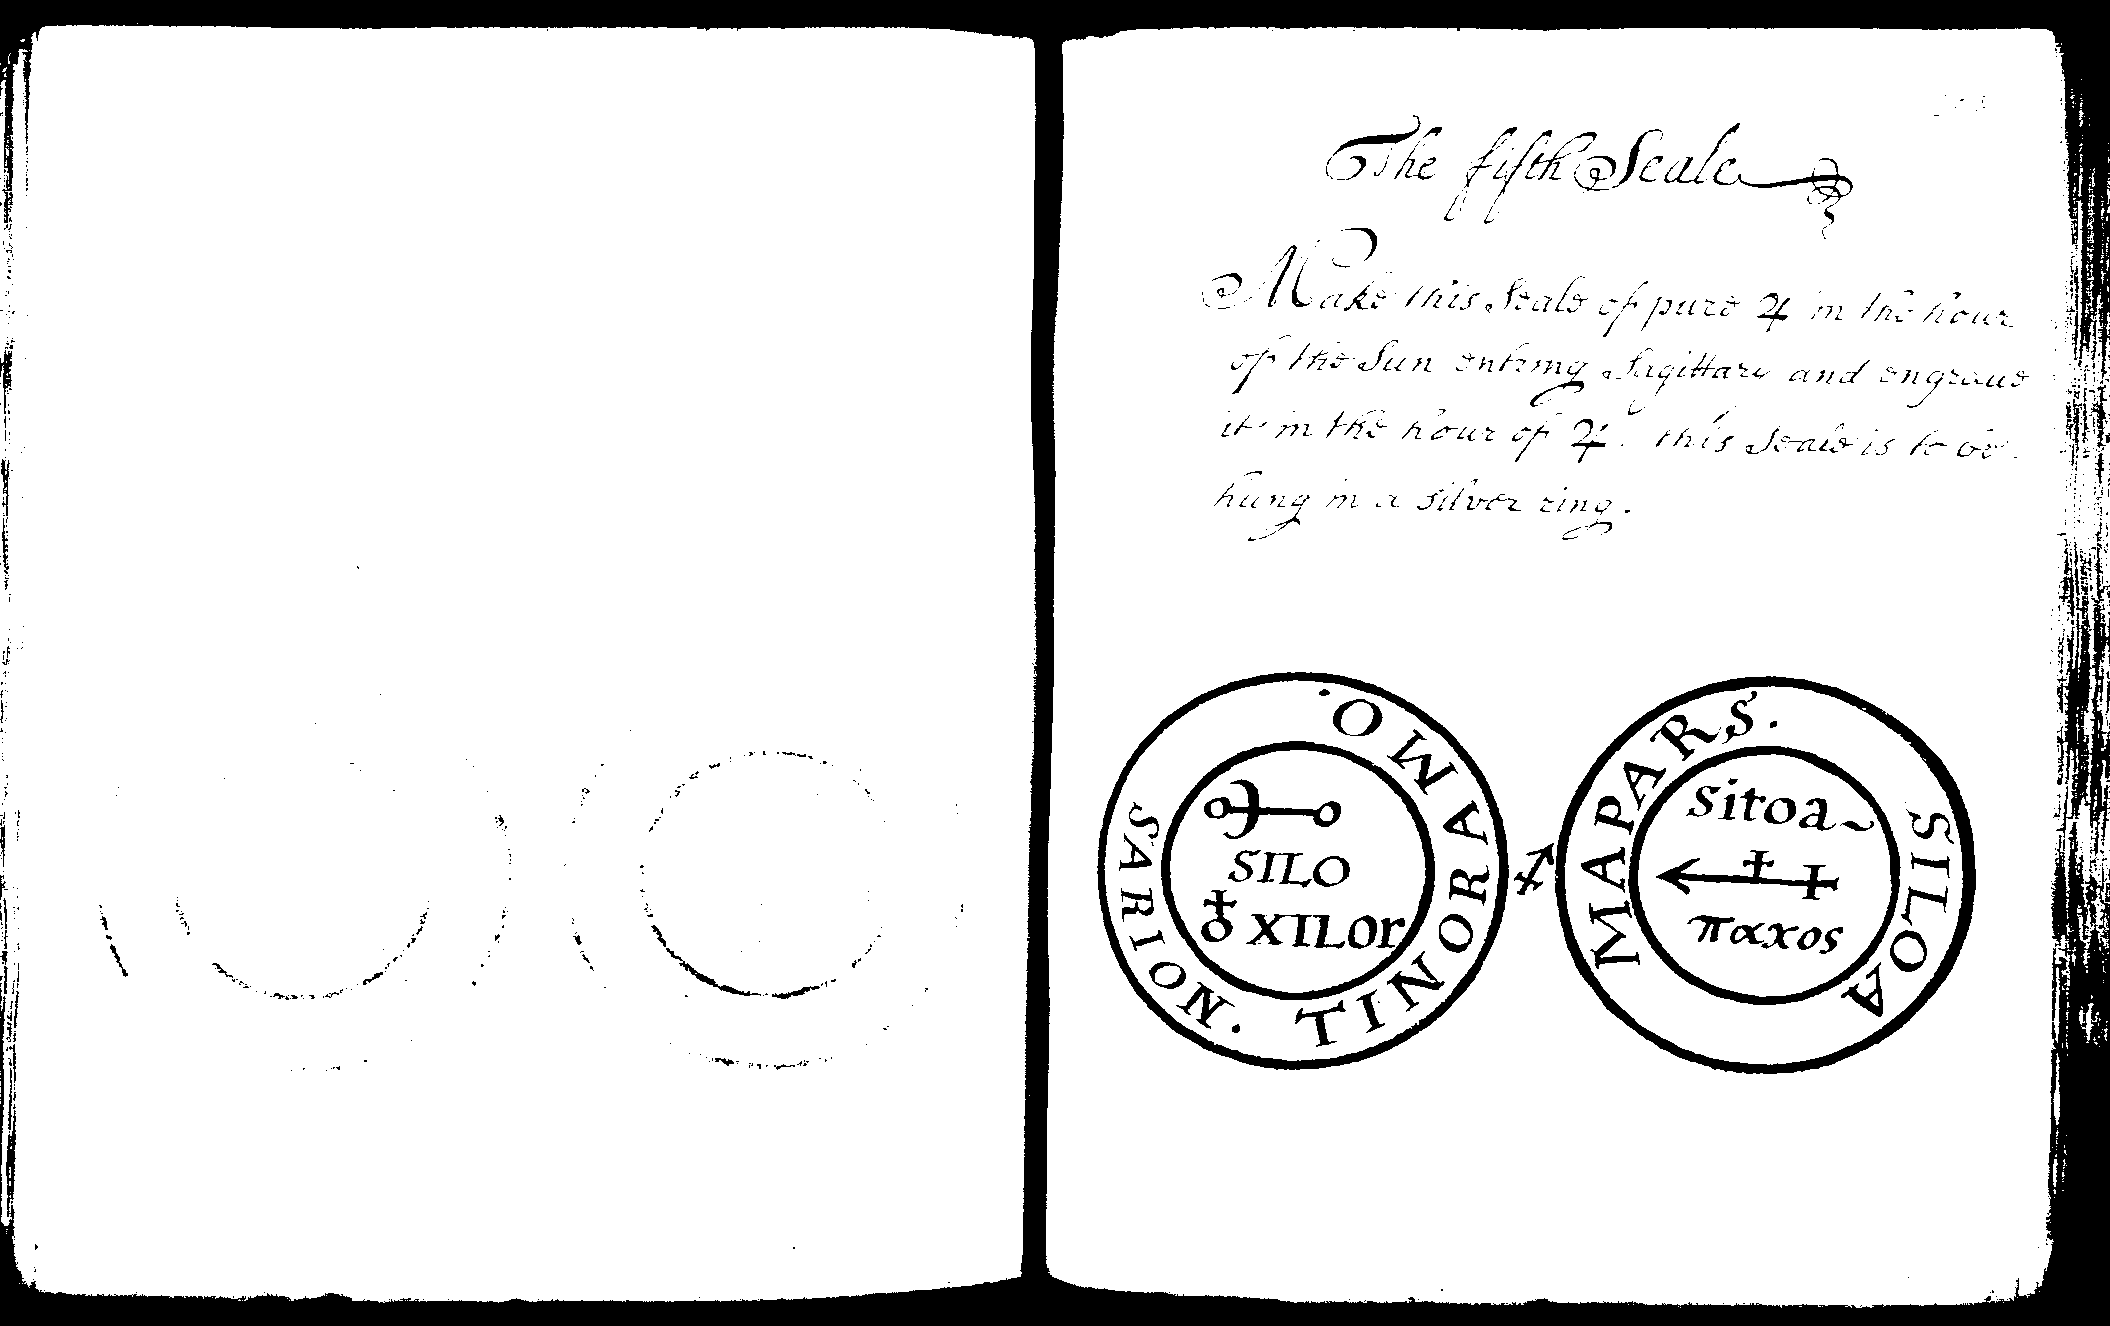 The fifth Seale
Make this Seale of pure ♃ in the hour
of the Sun entring Sagittary and engraue
it in the hour of ♃. this Seale is to be
hung in a silver ring.
SARION. TINORAMO.
SILO
XTLOr
♐
MAPARS. SILOA
sitoa~
παχος